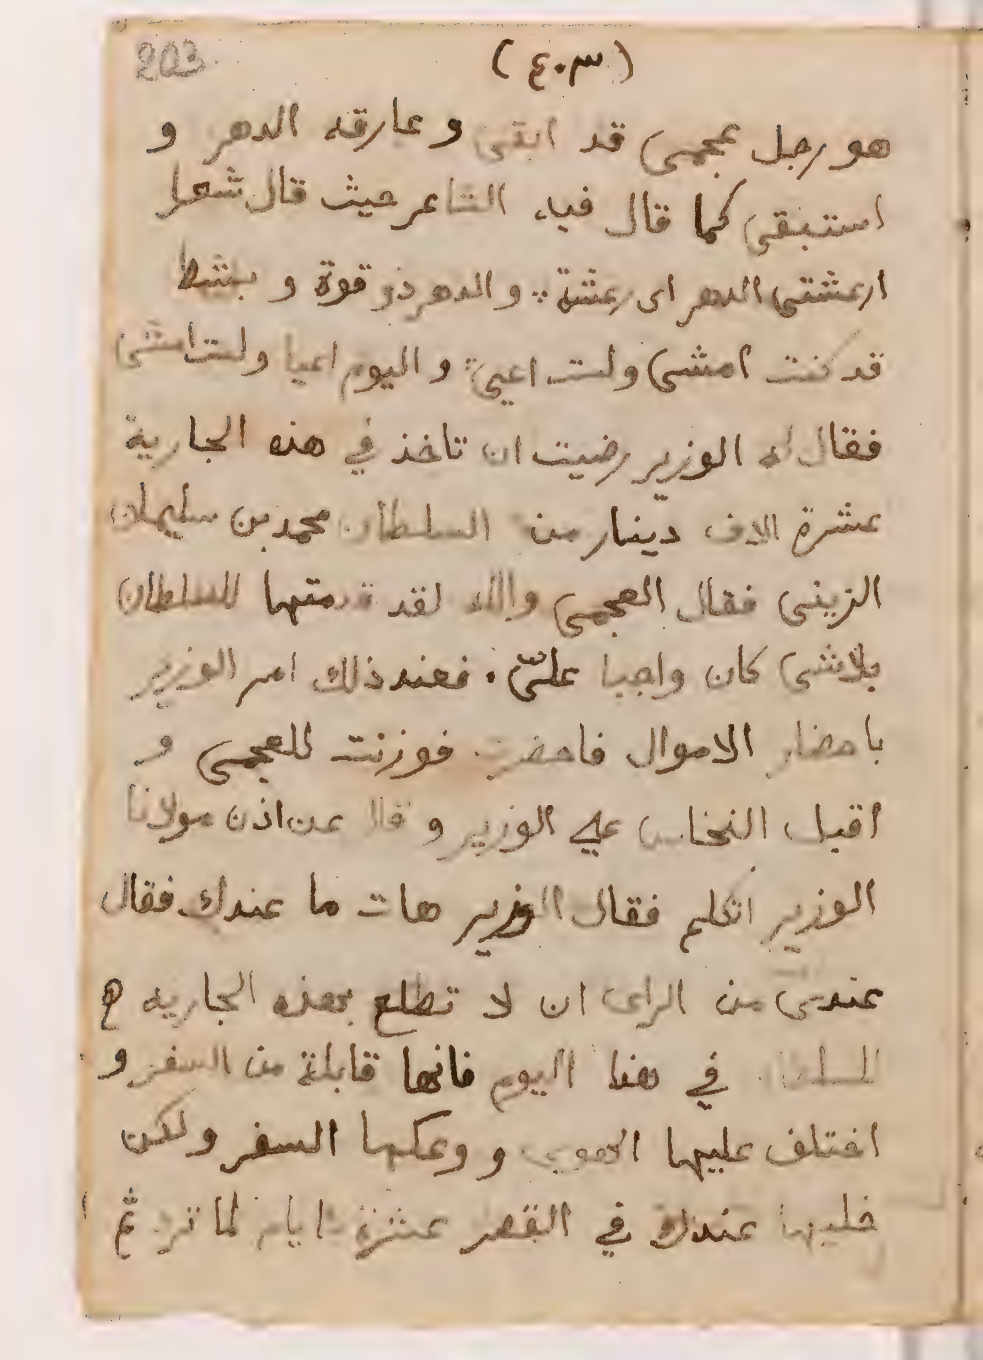 203
(٤٠٣)
هو رجل عجمي قد ابقى و عارقه الدهر و
استبقى كما قال فيه الشاعر حيث قال شعرا
ارعشتى الدهر اى رعشة ∵ والدهر ذو قوة و بشطا
قد كنت امشى ولست اعيى ∵ و اليوم اعيا ولست امشى
فقال له الوزير رضيت ان تاخذ في هذه الجارية
عشرة الاف دينار من السلطان محمد بن سليمان
الزينى فقال العجمى والله لقد قدمتها للسلطان
بلاشى كان واجبا علىّ • فعند ذلك امر الوزير
باحضار الاموال فاحضرت فوزنت للعجمى و
اقبل النخاس علي الوزير و قال عن اذن مولانا
الوزير اتكلم فقال الوزير هات ما عندك فقال
عندى من الراى ان لا تطلع بهذه الجاريه
للسلطان في هذا اليوم فانها قابلة من السفر و
اختلف عليها الهوى و وعكها السفر ولكن
خليها عندك في القصر عشرة ايام لما ترد ثم